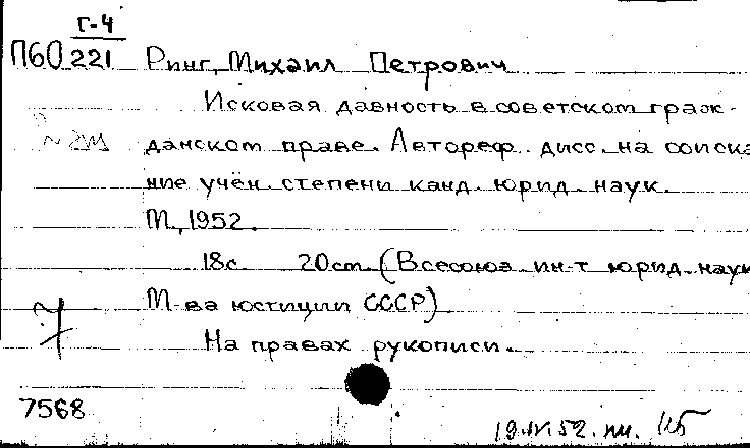 Г-4
П60 221 Ринг, Михаил Петрович
Исковая давность в советском граж-
данском праве. Автореф. дисс. на соиска
ние учён. степени канд. юрид. наук.
М., 1952.
18с. 20см. (Всесоюз. ин-т юрид. наук
М-ва юстиции СССР)
На правах рукописи.
7568